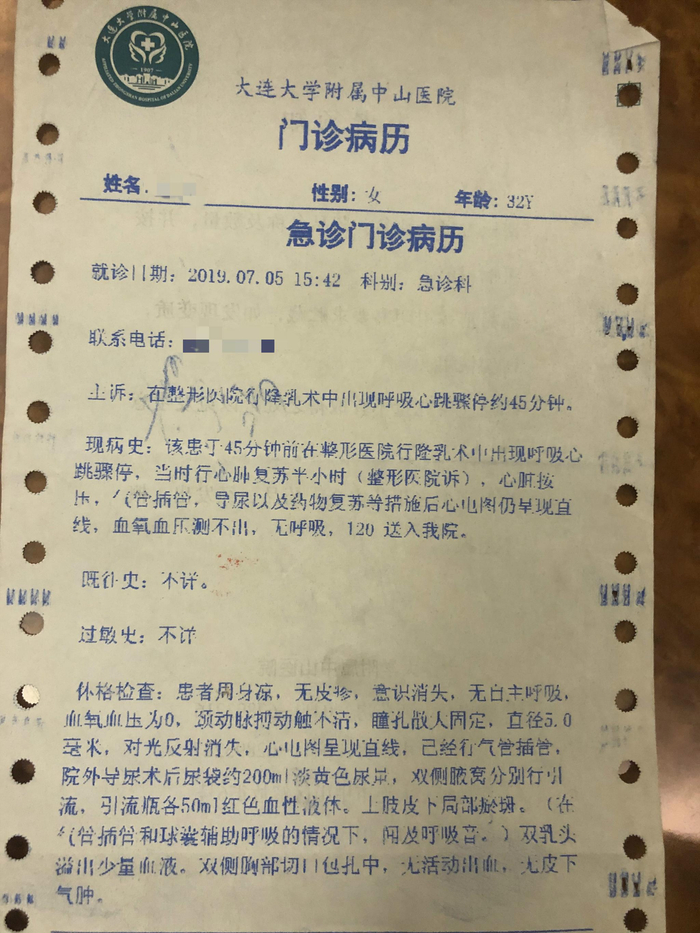 大连大学附属中山医院
1907
AFFILIATED ZHONGSHAN HOSPITAL OF DALIAN UNIVERSITY
大连大学附属中山医院
门诊病历
姓名: 性别: 女 年龄: 32Y
急诊门诊病历
就诊日期: 2019.07.05 15:42 科别: 急诊科
联系电话:
主诉: 在整形医院行隆乳术中出现呼吸心跳骤停约45分钟。
现病史: 该患于45分钟前在整形医院行隆乳术中出现呼吸心
跳骤停, 当时行心肺复苏半小时(整形医院诉), 心脏按
压, 气管插管, 导尿以及药物复苏等措施后心电图仍呈现直
线, 血氧血压测不出, 无呼吸, 120 送入我院。
既往史: 不详。
过敏史: 不详
体格检查: 患者周身凉, 无皮疹, 意识消失, 无自主呼吸,
血氧血压为0, 颈动脉搏动触不清, 瞳孔散大固定, 直径5.0
毫米, 对光反射消失, 心电图呈现直线, 已经行气管插管,
院外导尿术后尿袋约200ml淡黄色尿量, 双侧腋窝分别行引
流, 引流瓶各50ml红色血性液体。上肢皮下局部瘀斑。(在
气管插管和球囊辅助呼吸的情况下, 闻及呼吸音。) 双乳头
溢出少量血液。双侧胸部切口包扎中, 无活动出血, 无皮下
气肿。